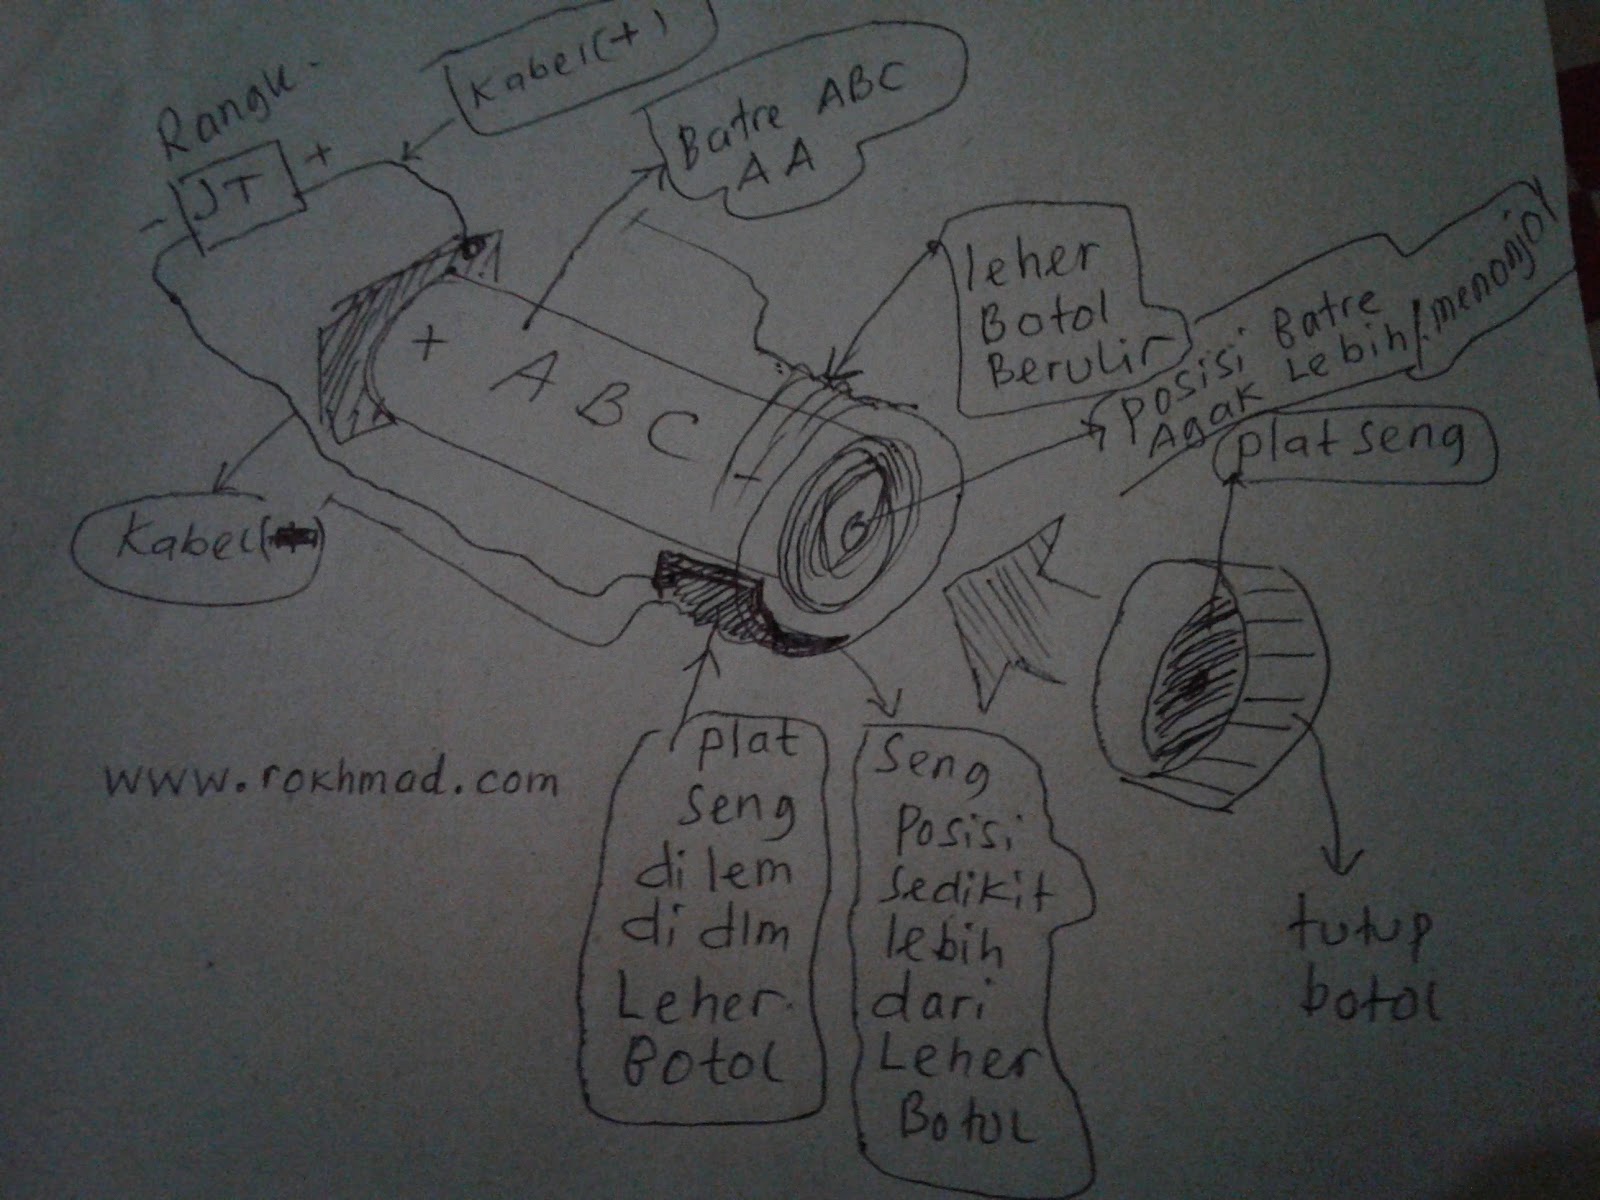 Kabel(+)
JT
+
-
Batre ABC
AA
leher
Botol
Berulir
Posisi Batre
Agak Lebih menonjol
plat seng
+
A B C
-
Kabel(
plat
seng
di lem
di dlm
Leher
Botol
Seng
Posisi
sedikit
lebih
dari
Leher
Botol
tutup
botol
www.rokhmad.com